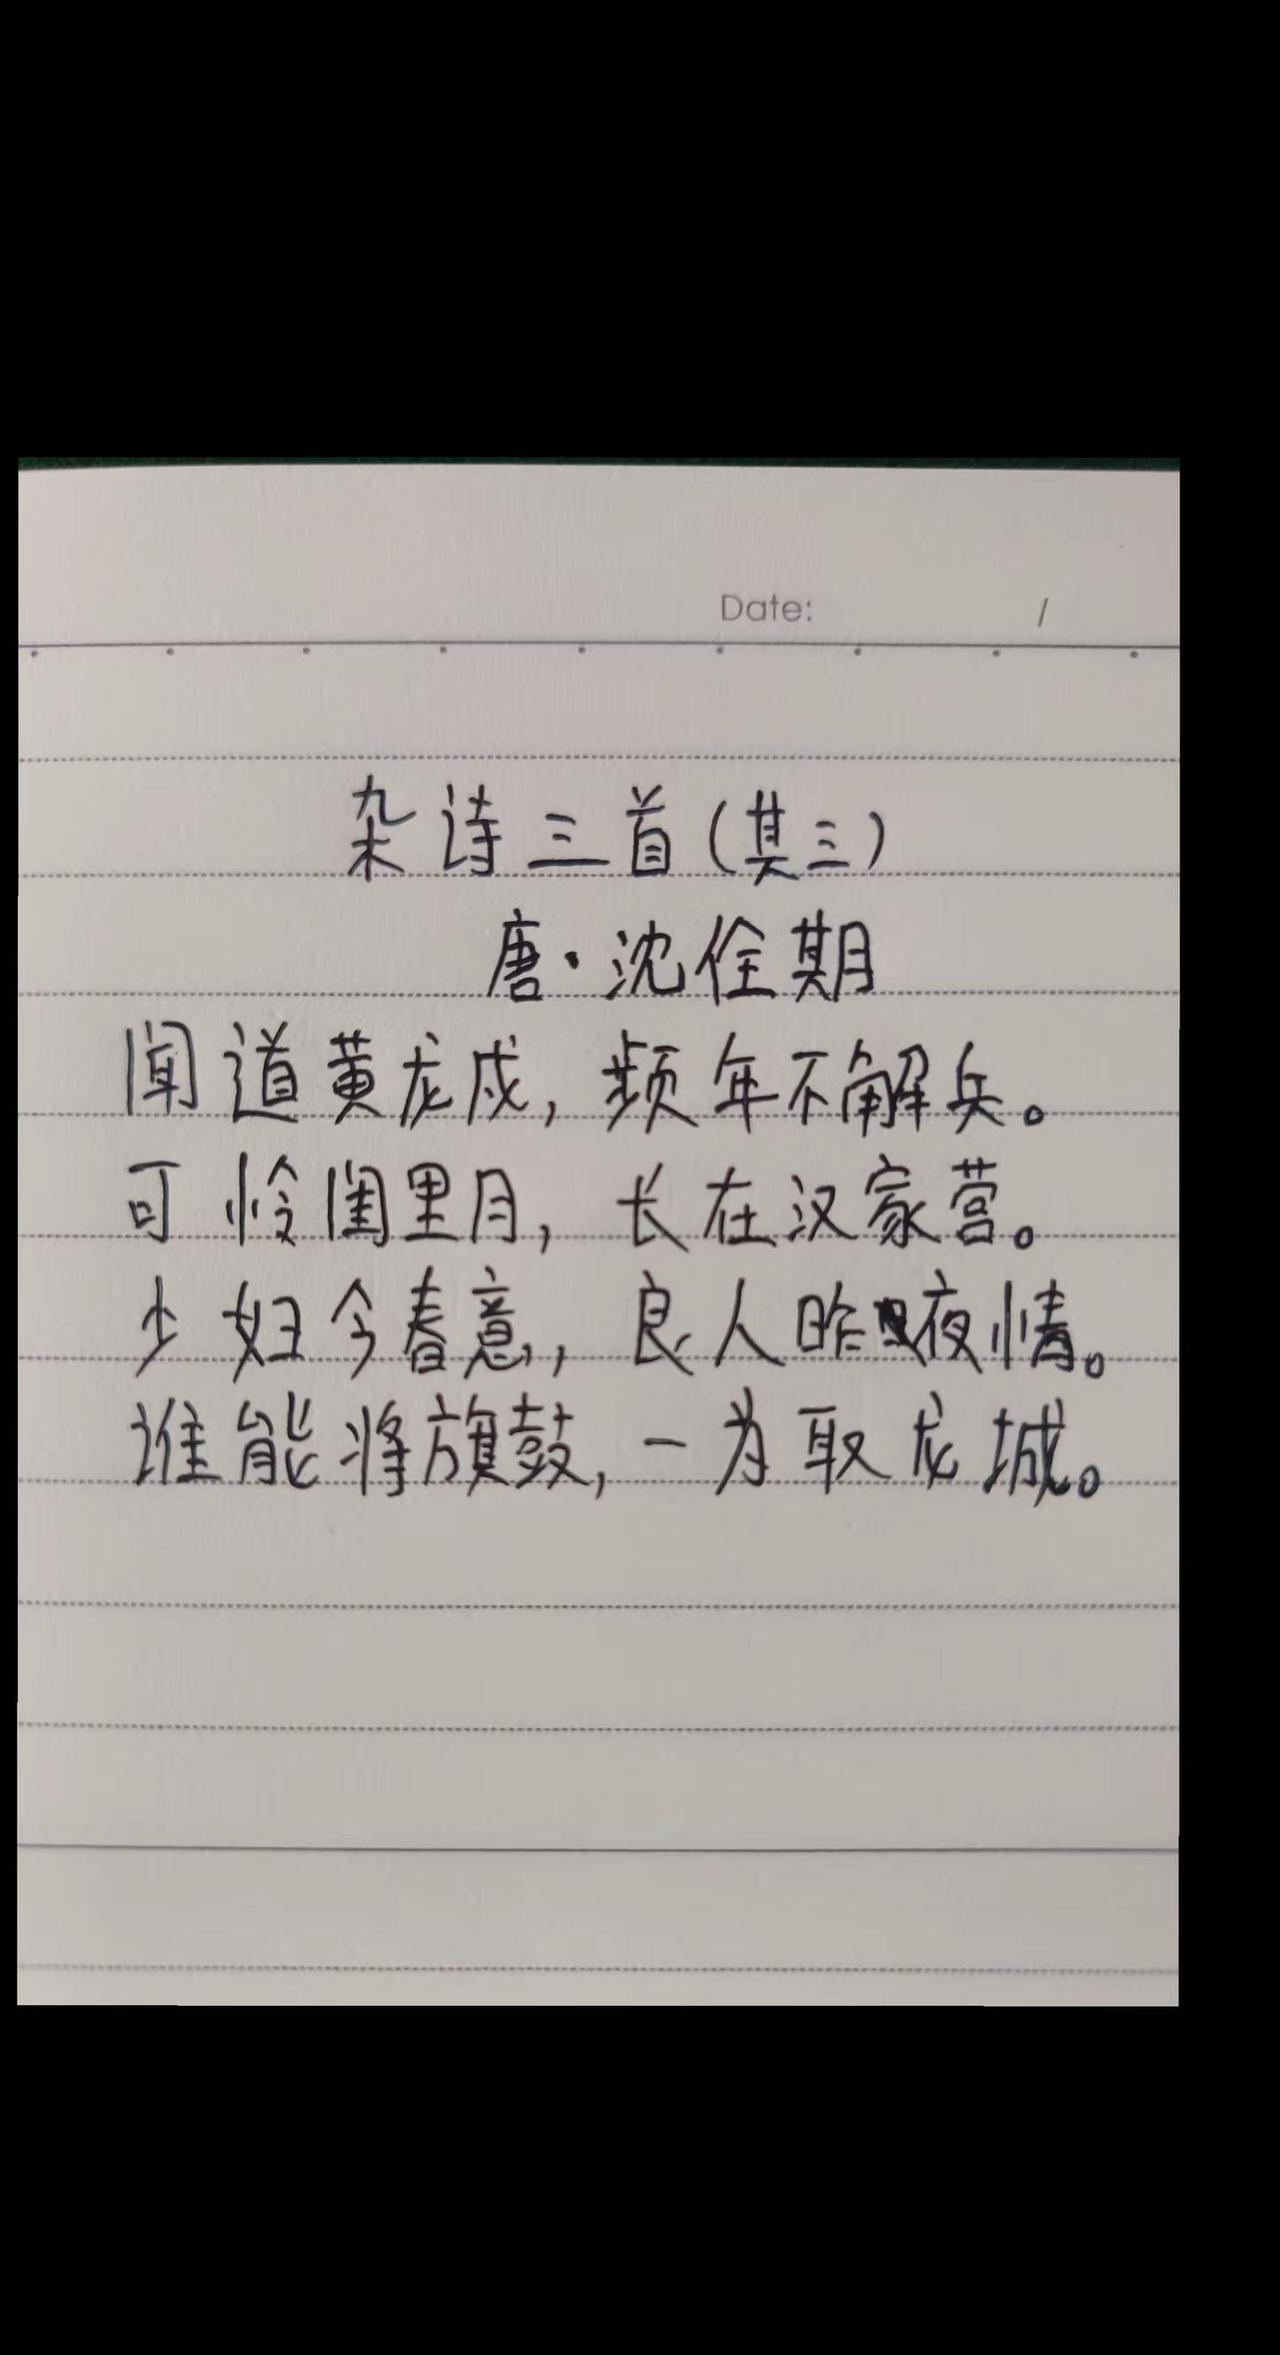 Date: /
杂诗三首(其三)
唐·沈佺期
闻道黄龙戍,频年不解兵。
可怜闺里月,长在汉家营。
少妇今春意,良人昨夜情。
谁能将旗鼓,一为取龙城。